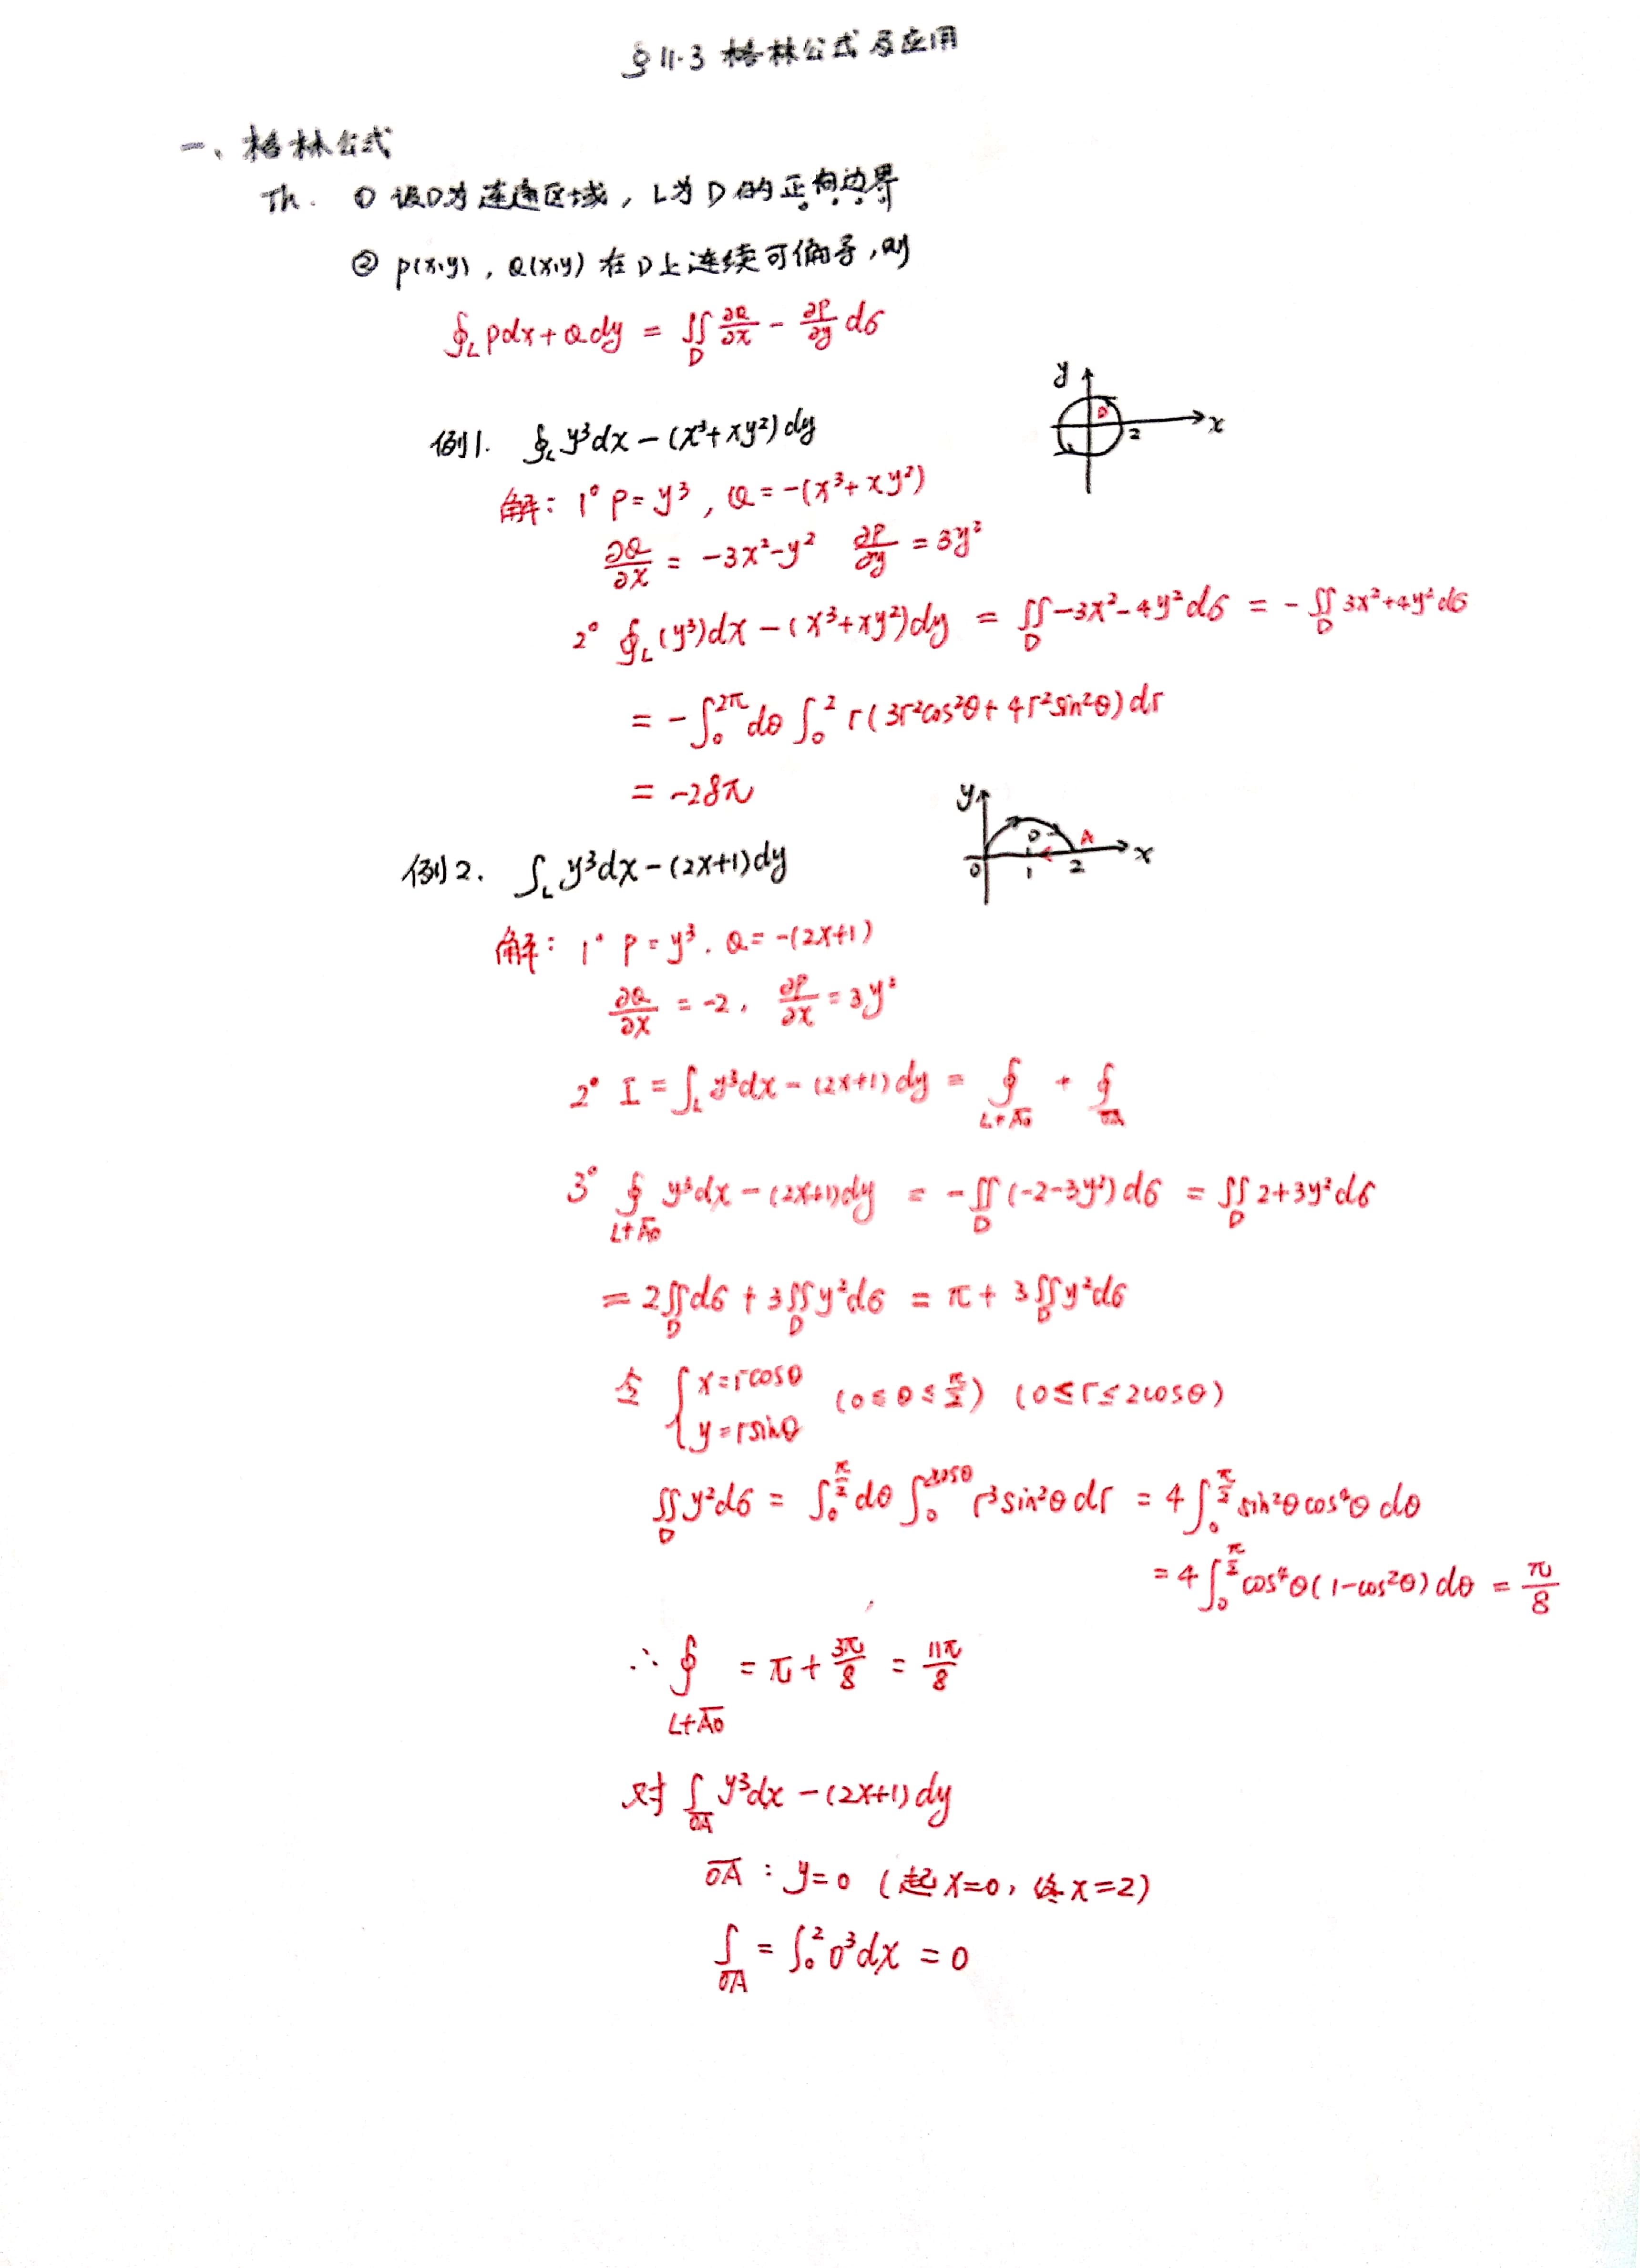 §11.3 格林公式及应用
一、格林公式
Th. ① 设D为连通区域，L为D的正向边界
② P(x,y)，Q(x,y)在D上连续可偏导，则
∮_L Pdx+Qdy = ∬_D ∂Q/∂x - ∂P/∂y dσ
y
D
2
x
例1. ∮_L y³dx-(x³+xy²)dy
解：1° P=y³，Q=-(x³+xy²)
∂Q/∂x = -3x²-y² ∂P/∂y = 3y²
2° ∮_L (y³)dx-(x³+xy²)dy = ∬_D -3x²-4y²dσ = -∬_D 3x²+4y²dσ
= -∫₀^{2π}dθ ∫₀² r(3r²cos²θ+4r²sin²θ)dr
= -28π
y
D
A
0
1
2
x
例2. ∫_L y³dx-(2x+1)dy
解：1° P=y³. Q=-(2x+1)
∂Q/∂x = -2， ∂P/∂x = 3y²
2° I=∫_L y³dx-(2x+1)dy = ∮_{L+A̅O̅} + ∮_{O̅A̅}
3° ∮_{L+A̅O̅} y³dx-(2x+1)dy = -∬_D (-2-3y²)dσ = ∬_D 2+3y²dσ
= 2∬_D dσ + 3∬_D y²dσ = π+3∬_D y²dσ
令 { x=rcosθ y=rsinθ (0≤θ≤π/2) (0≤r≤2cosθ)
∬_D y²dσ = ∫₀^{π/2}dθ ∫₀^{2cosθ} r³sin²θdr = 4∫₀^{π/2} sin²θcos⁴θdθ
= 4∫₀^{π/2} cos⁴θ(1-cos²θ)dθ = π/8
∴ ∮_{L+A̅O̅} = π+3π/8 = 11π/8
对 ∫_{O̅A̅} y³dx-(2x+1)dy
O̅A̅：y=0 (起x=0，终x=2)
∫_{O̅A̅} = ∫₀² 0³dx = 0